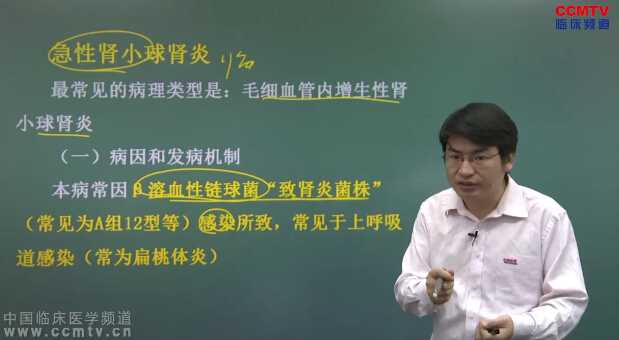 CCMTV
临床频道
急性肾小球肾炎
最常见的病理类型是：毛细血管内增生性肾
小球肾炎
（一）病因和发病机制
本病常因β溶血性链球菌“致肾炎菌株”
（常见为A组12型等）感染所致，常见于上呼吸
道感染（常为扁桃体炎）
中国临床医学频道
www.ccmtv.cn